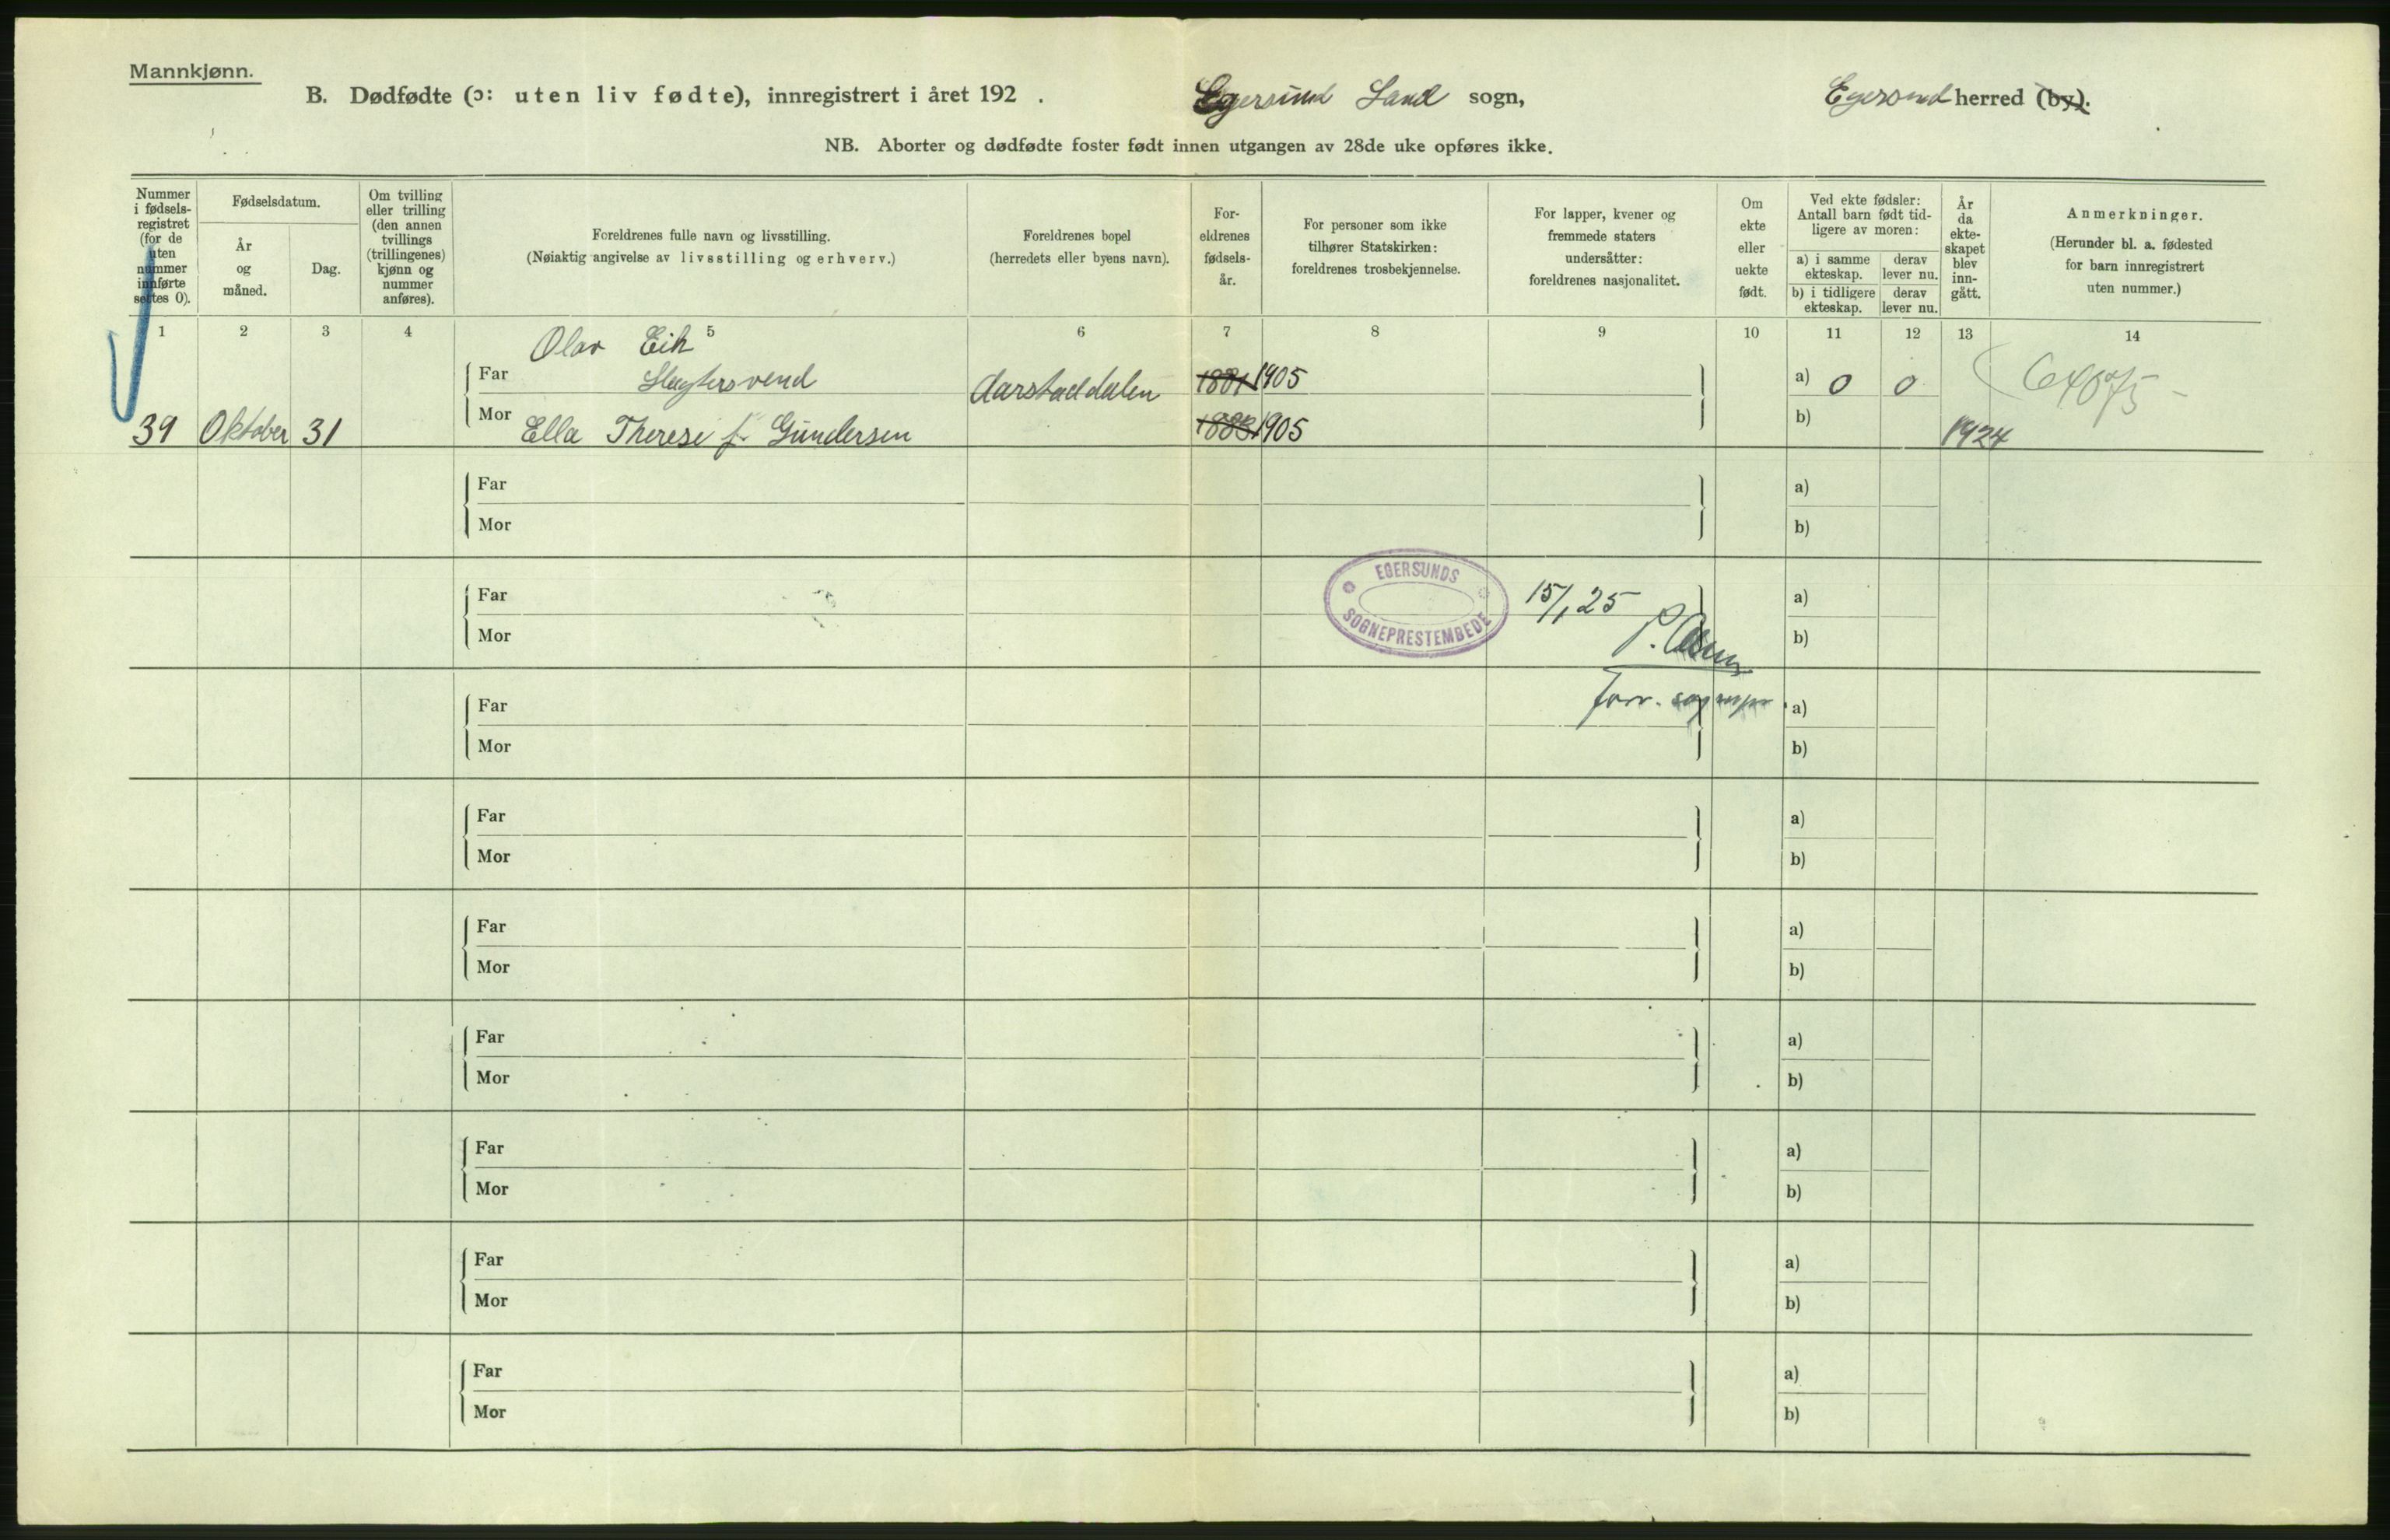 Mannkjønn.
B. Dødfødte (ɔ: uten liv fødte), innregistrert i året 192 . Egersund Land sogn, Egersund herred (by).
NB. Aborter og dødfødte foster født innen utgangen av 28de uke opføres ikke.
Nummer i fødsels-registret (for de uten nummer innførte settes 0).
Fødselsdatum.
År og måned.
Dag.
Om tvilling eller trilling (den annen tvillings (trillingenes) kjønn og nummer anføres).
Foreldrenes fulle navn og livsstilling.
(Nøiaktig angivelse av livsstilling og erhverv.)
Foreldrenes bopel
(herredets eller byens navn).
For-eldrenes fødsels-år.
For personer som ikke tilhører Statskirken: foreldrenes trosbekjennelse.
For lapper, kvener og fremmede staters undersåtter: foreldrenes nasjonalitet.
Om ekte eller uekte født.
Ved ekte fødsler: Antall barn født tid-ligere av moren:
a) i samme ekteskap.
derav lever nu.
b) i tidligere ekteskap.
derav lever nu.
År da ekte-skapet blev inn-gått.
Anmerkninger.
(Herunder bl. a. fødested for barn innregistrert uten nummer.)
1 2 3 4 5 6 7 8 9 10 11 12 13 14
Olav Eik
Far Slagtersvend Aarstaddalen 1881 1905 a) 0 0
39 Oktober 31 Mor Ella Therese f. Gundersen 1883 1905 b) 1924
Far a)
Mor b)
EGERSUNDS SOGNEPRESTEMBEDE
15/1 25
Far a)
Mor b)
P.
Far a)
Mor b)
Far a)
Mor b)
Far a)
Mor b)
Far a)
Mor b)
Far a)
Mor b)
Far a)
Mor b)
Far a)
Mor b)